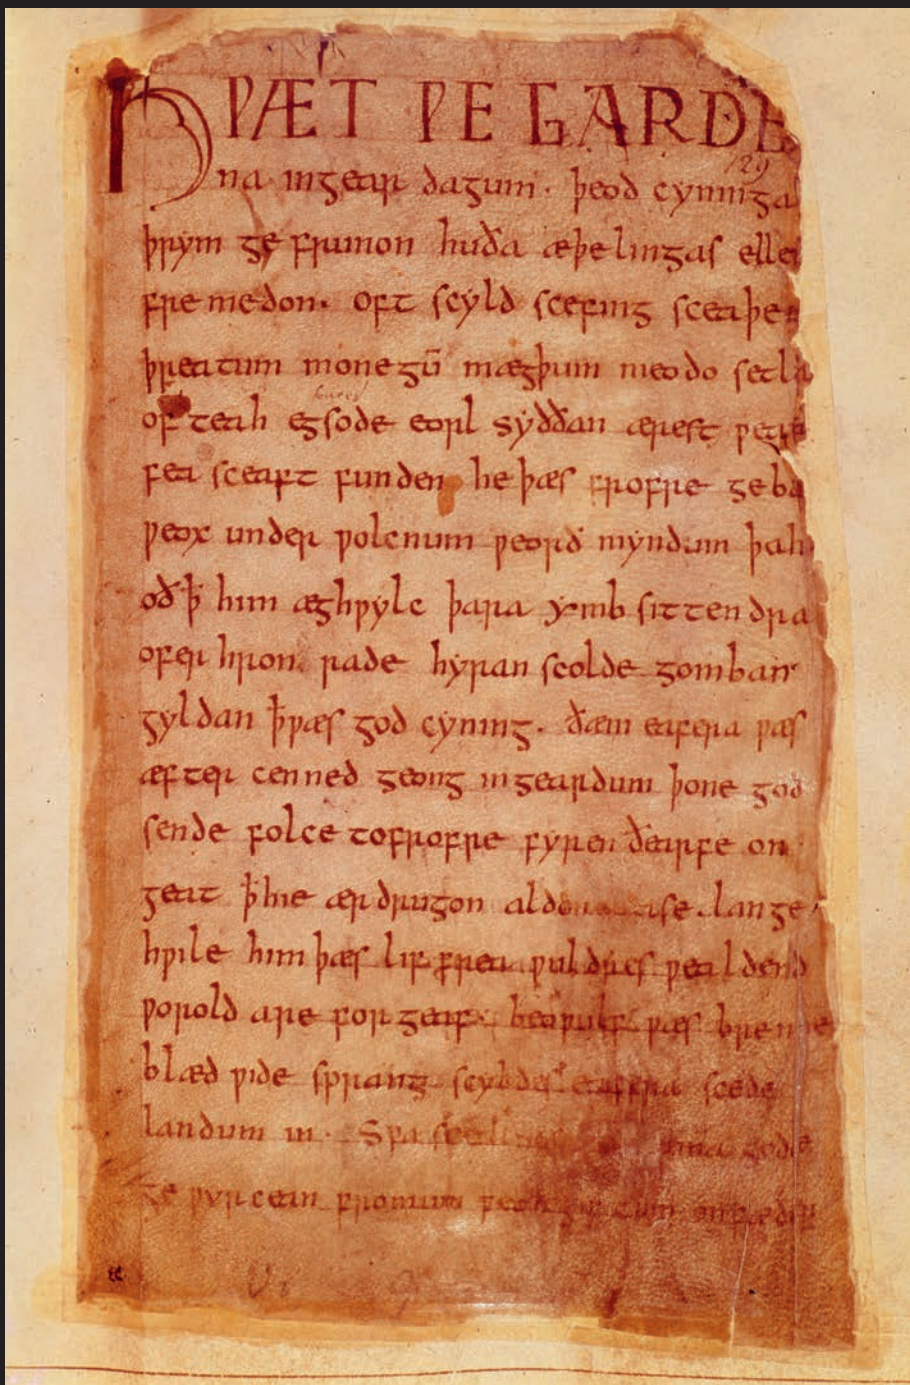 HǷÆT ǷE GARDE
129
na ingear dagum · þeod cyninga
þrym ge frunon huða æþelingas ellen
fre medon · oft scyld scefing sceaþe
þreatum monegū mægþum meodo setla
of teah egsode eorl syððan ærest ƿear
fea sceaft funden he þæs frofre geba
ƿeox under ƿolcnum ƿeorð myndum þah
oð ꝥ him æghƿylc þara ymb sittendra
ofer hron rade hyran scolde gomban
gyldan ꝥ ƿæs god cyning · ðæm eafera ƿæs
æfter cenned geong ingeardum þone god
sende folce tofrofre fyren ðearfe on
geat ꝥ hie ær drugon aldor ase · lange
hƿile him þæs lif frea ƿuldres ƿealdend
ƿorold are for geaf · beoƿulf ƿæs breme
blæd ƿide sprang scyldes eafera scede
landum in · Sƿa gode
ge ƿyrcean fromum feoh giftum